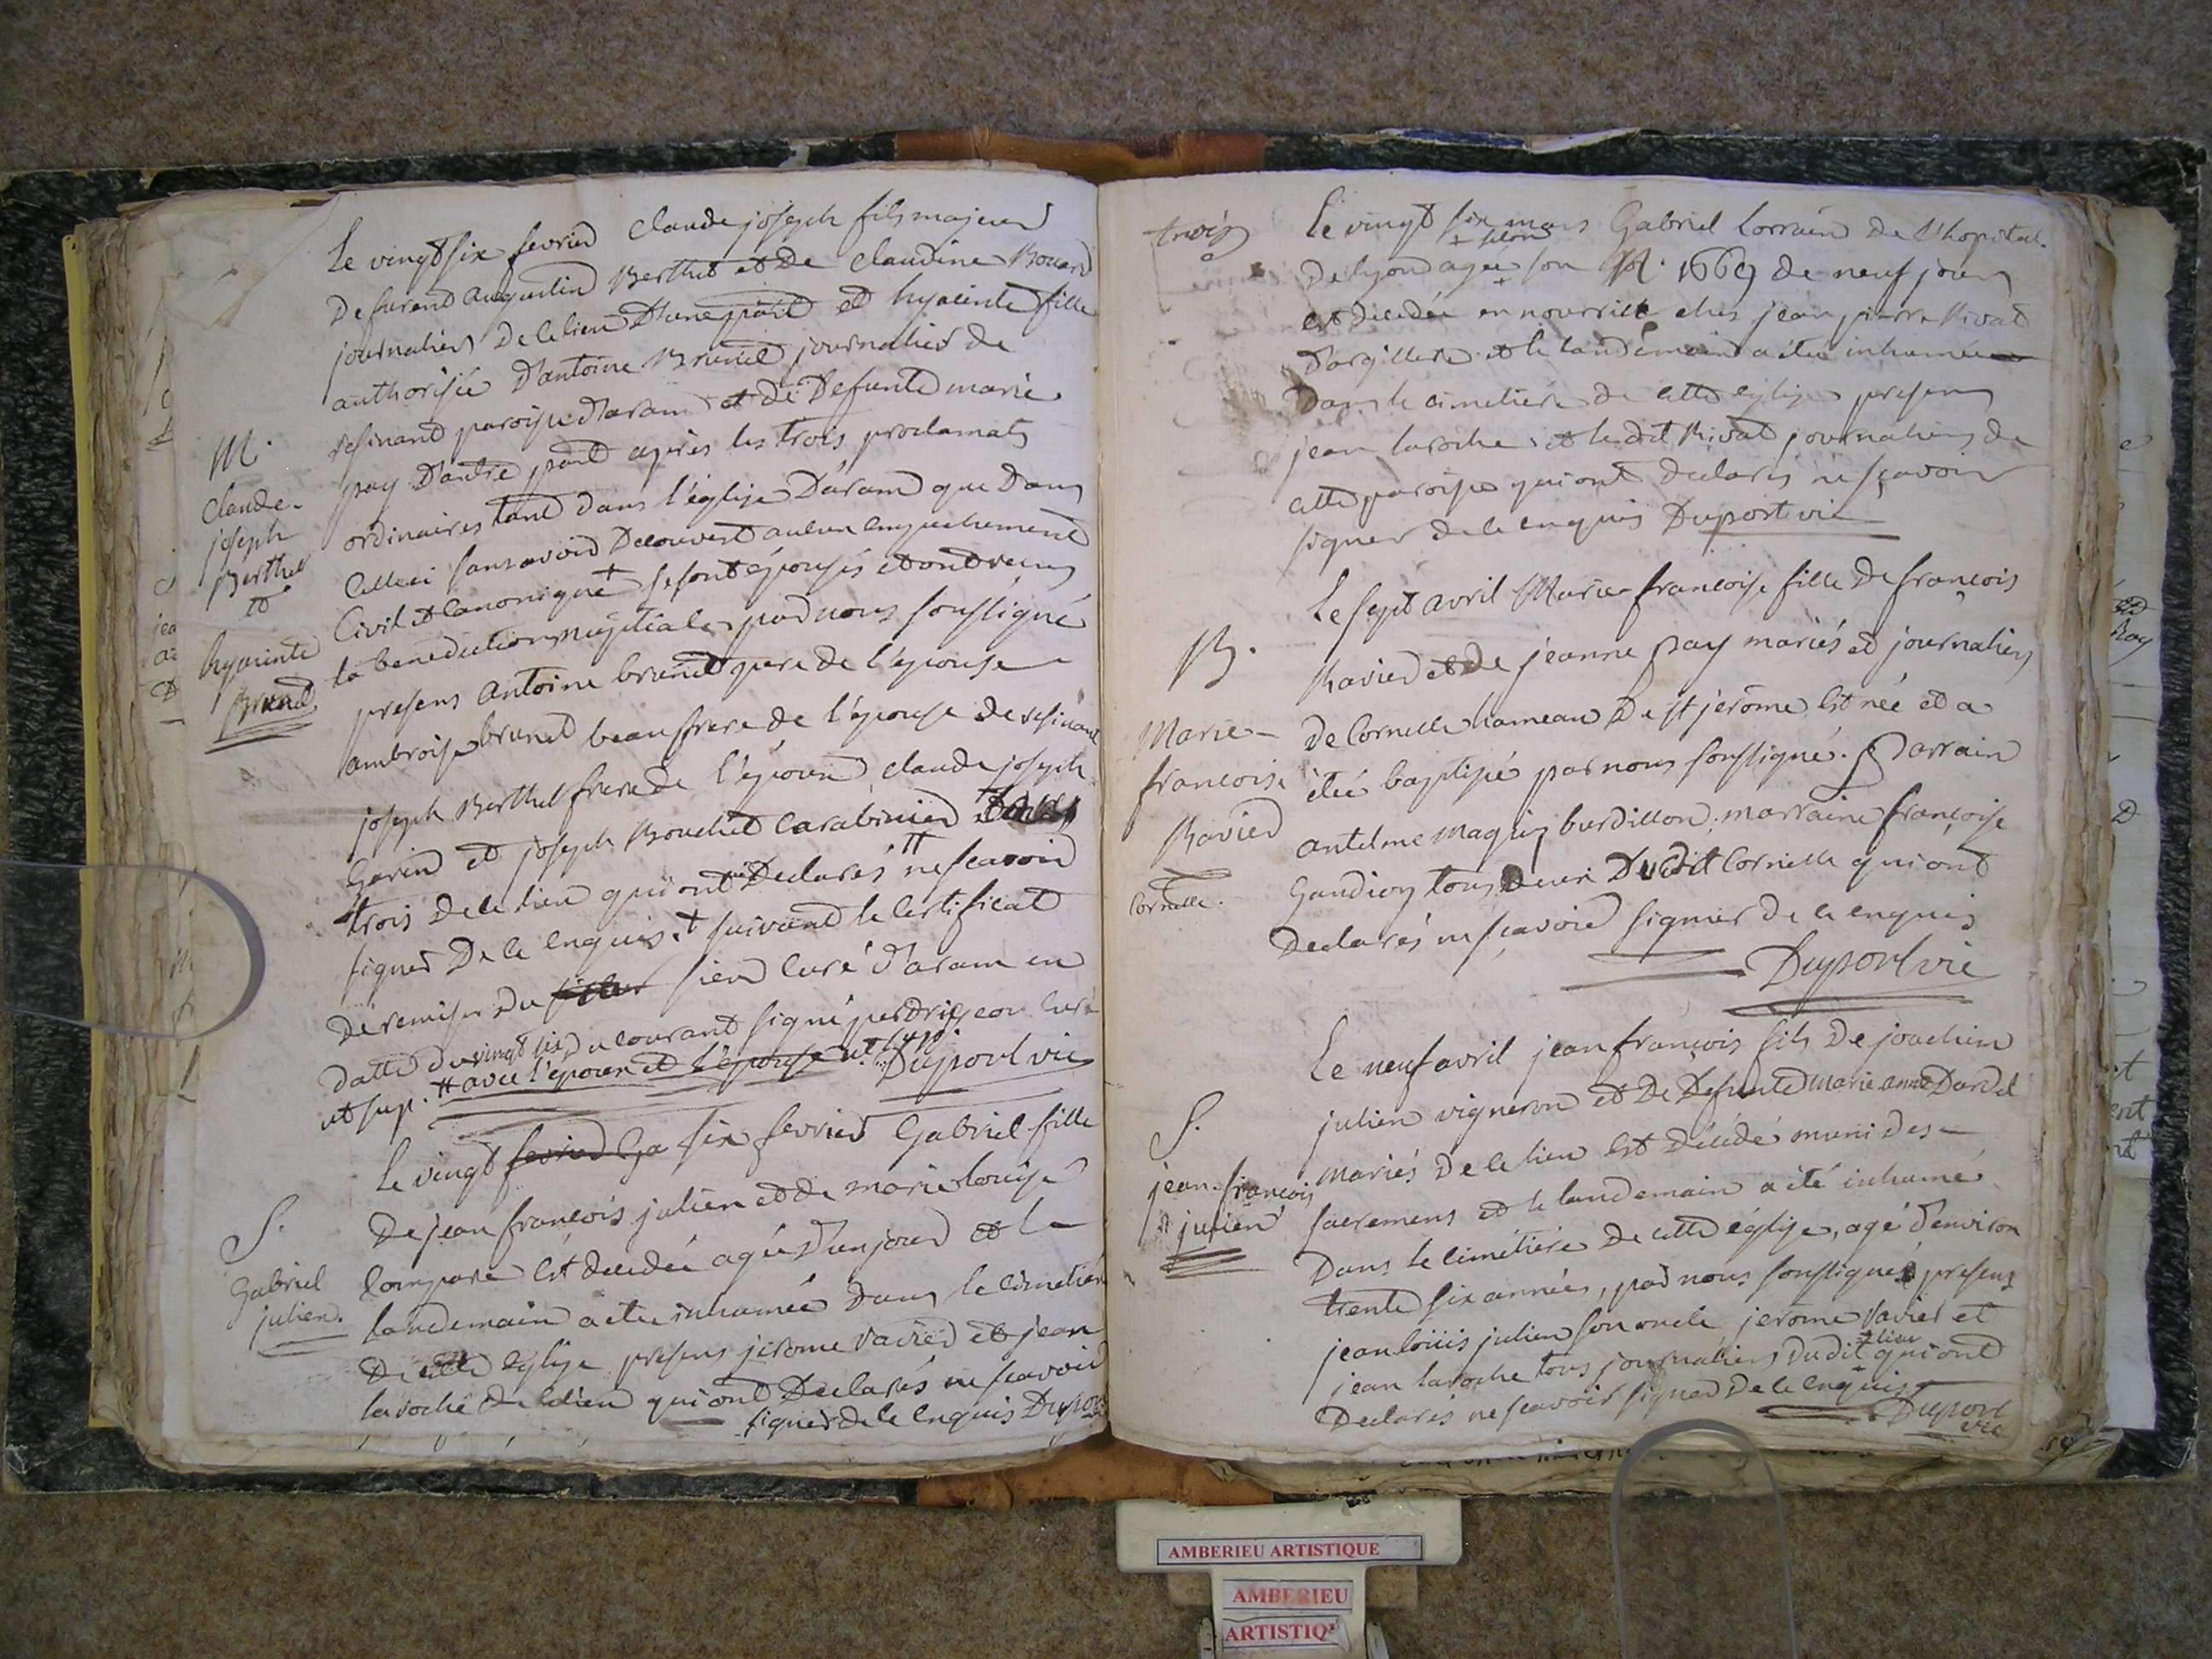 Le vingt six fevrier Claude joseph fils majeur
De furent augustin Berthet et De Claudine Bouard
journaliers De ce lieu D'une part et hyacinte fille
authorisée D'antoine Brunet journalier de
resinand paroisse D'aram et De Defunte marie
pay D'autre part après les trois proclamats
ordinaires tant dans l'église D'aram que Dans
Celleci sans avoir Decouvert aucun empechement
Civil et Canonique + se sont épousés et ont recus
la benediction nuptiale par nous soussigné
presens antoine brunet pere de l'epouse
ambroise brunet beaufrere de l'épouse de resinand
joseph Berthet frere de l'époux Claude joseph
Garin et joseph Bouchet Carabinier
trois De ce lieu qui ont Declarés ++ ne scavoir
signer De ce enquis. + suivant le Certificat
De remise du sieur Curé d'aram en
datte du vingt six du courant signé perdrigeon Curé
++ avec l'epoux et l'épouse
et sup. Duport vic
M.
Claude-
joseph
Berthet
et
hyacinte
Brunet
Le vingt fevrier Ga six fevrier Gabriel fille
De jean francois julien et de marie louise
Compare est decedée agée D'un jour et le
landemain a eté inhumée Dans le cimetiere
De cette eglise presens jérome ravier et jean
laroche de ce lieu qui ont Declarés ne scavoir
signer de ce enquis Duport
S.
Gabriel
julien.
trois
Le vingt six mars Gabriel lorrain De l'hopital
+ selon
De lyon agée + son N. 1669 de neuf jours
est decedée en nourrice ches jean pierre Rivat
D'argillere et le landemain a eté inhumée
Dans le cimetiere de cette eglise presens
jean laroche et le dit Rivat journaliers de
cette paroisse qui ont declarés ne sçavoir
signer de ce enquis Duport vic
Le sept avril Marie francoise fille De francois
Ravier et De jeanne pay mariés et journaliers
de Cornelle hameau De st jérôme est née et a
étée baptisée par nous soussigné. Parrain
antelme Magnin burdillon, marraine françoise
Gandion tous Deux Dudit Cornelle qui ont
Declarés ne sçavoir signer de ce enquis
Duport vic
B.
Marie-
francoise
Ravier
Cornelle.
Le neuf avril jean françois fils De joachim
julien vigneron et De Defunte Marie anne Dardel
mariés De ce lieu est décédé muni des
sacremens et le landemain a été inhumé
Dans le cimétière De cette église, agé d'environ
trente six années, par nous soussigné presens
jean loüis julien son oncle jerome ravier et
jean laroche tous journaliers dudit + qui ont
+ lieu
Declarés ne scavoir signer De ce enquis
Duport
vic
S.
jean-françois
julien
AMBERIEU ARTISTIQUE
AMBERIEU
ARTISTIQ